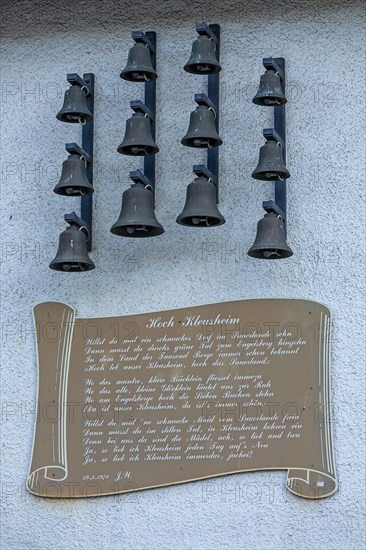 Hoch Kleusheim
Willst du mal ein schmuckes Dorf im Sauerlande sehn
Dann musst du durchs grüne Tal zum Engelsberg hingehn
In dem Land der Tausend Berge immer schon bekannt
Hoch leb unser Kleusheim, hoch das Sauerland.
Wo das muntre, klare Bächlein fliesset immerzu
Wo das alte, kleine Glöcklein läutet uns zur Ruh
Wo am Engelsberge hoch die Sieben Buchen stehn
Da ist unser Kleusheim, da ist's immer schön.
Willst du mal 'ne schmucke Maid vom Sauerlande frein
Dann musst du im stillen Tal, in Kleusheim kehren ein
Denn bei uns da sind die Mädel, ach, so lieb und treu
Ja, so lieb ich Kleusheim jeden Tag auf's Neu
Ja, so lieb ich Kleusheim immerdar, juchei!
J.W.